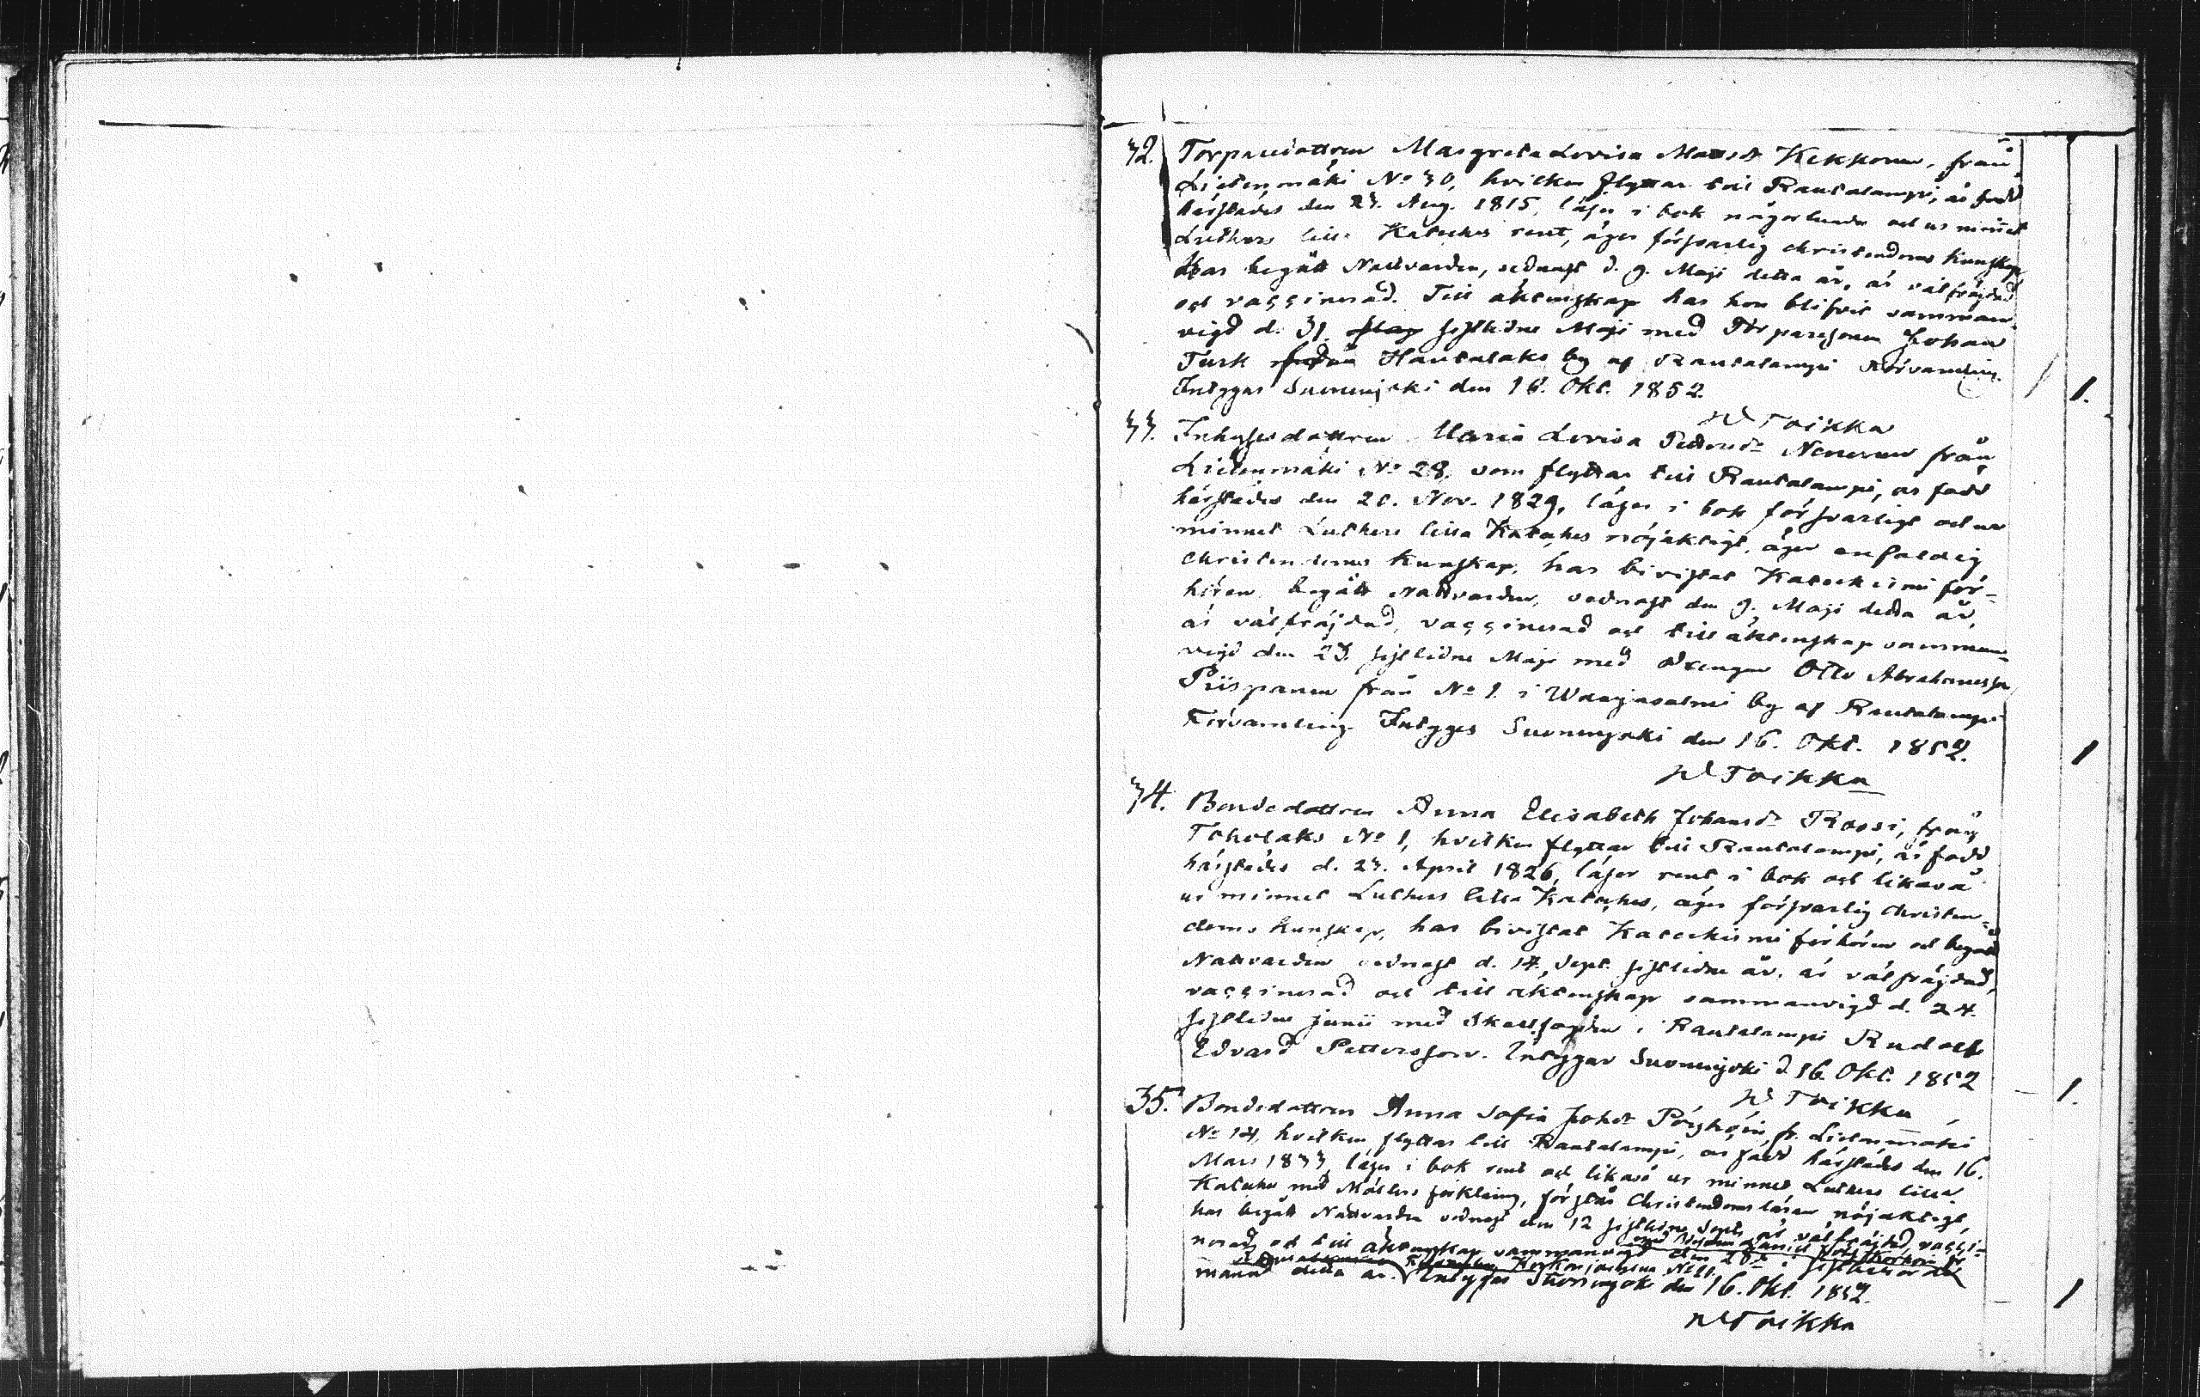 32. Torparedottren Margreta Lovisa Matsdr Kekkonen, från
Lietenmäki No 30, hvilken flyttar till Rautalampi, är född
härstädes den 23. Aug. 1815, läser i bok någorlunda och ur minnet
Luthers lilla Kateches rent, äger försvarlig christendoms kunskap
har begått Nattvarden, sednast d. 9. Maji detta år, är välfräjdad
och vaccinerad. Till äktenskap har hon blifvit samman-
vigd d. 31. sistlidne Maji med Torparesonen Johan
Turk från Hautalaks by af Rautalampi Församling.
Intygar Suonenjoki den 16. Okt. 1852. 1.
W Toikka
33. Inhysesdottren Maria Lovisa Pettersdr Nenonen från
Lietenmäki No 28, som flyttar till Rautalampi, är född
härstädes den 20. Nov. 1829, läser i bok försvarligt och ur
minnet Luthers lilla Kateches nöjaktigt, äger enfaldig
christendoms kunskap, har bivistat Katechismi för-
hören, begått Nattvarden, sednast den 9. Maji detta år,
är välfräjdad, vaccinerad och till äktenskap samman-
vigd den 23. sistlidne Maji med Drengen Otto Abrahamsson
Piispanen från No 1 i Waajasalmi by af Rautalampi
Församling. Intygas Suonenjoki den 16. Okt. 1852. 1
W Toikka
34. Bondedottren Anna Elisabeth Johansdr Rossi, från
Toholaks No 1, hvilken flyttar till Rautalampi, är född
härstädes d. 23. April 1826, läser rent i bok och likaså
ur minnet Luthers lilla Kateches, äger försvarlig christen-
doms kunskap, har bivistat Katechismi förhören och begått
Nattvarden sednast d. 14. Sept. sistlidne år, är välfräjdad,
vaccinerad och till äktenskap sammanvigd d. 24.
sistlidne junii med Skallfogden i Rautalampi Rudolf
Edvard Pettersson. Intygar Suonenjoki d. 16. Okt. 1852 1.
W Toikka
35. Bondedottren Anna Sofia Johdr Pörhöin, fr. Lietenmäki
No 14, hvilken flyttar till Rautalampi, är född härstädes den 16.
Mars 1833, läser i bok rent och likaså ur minnet Luthers lilla
Kateches med Möllers förklaring, förstår Christendoms läran nöjaktigt,
har begått Nattvarden sednast den 12 sistlidne Sept, är välfräjdad, vacci-
nerad och till äktenskap sammanvigd den 28
detta år. Intygas Suonenjoki den 16. Okt. 1852. 1
W Toikka